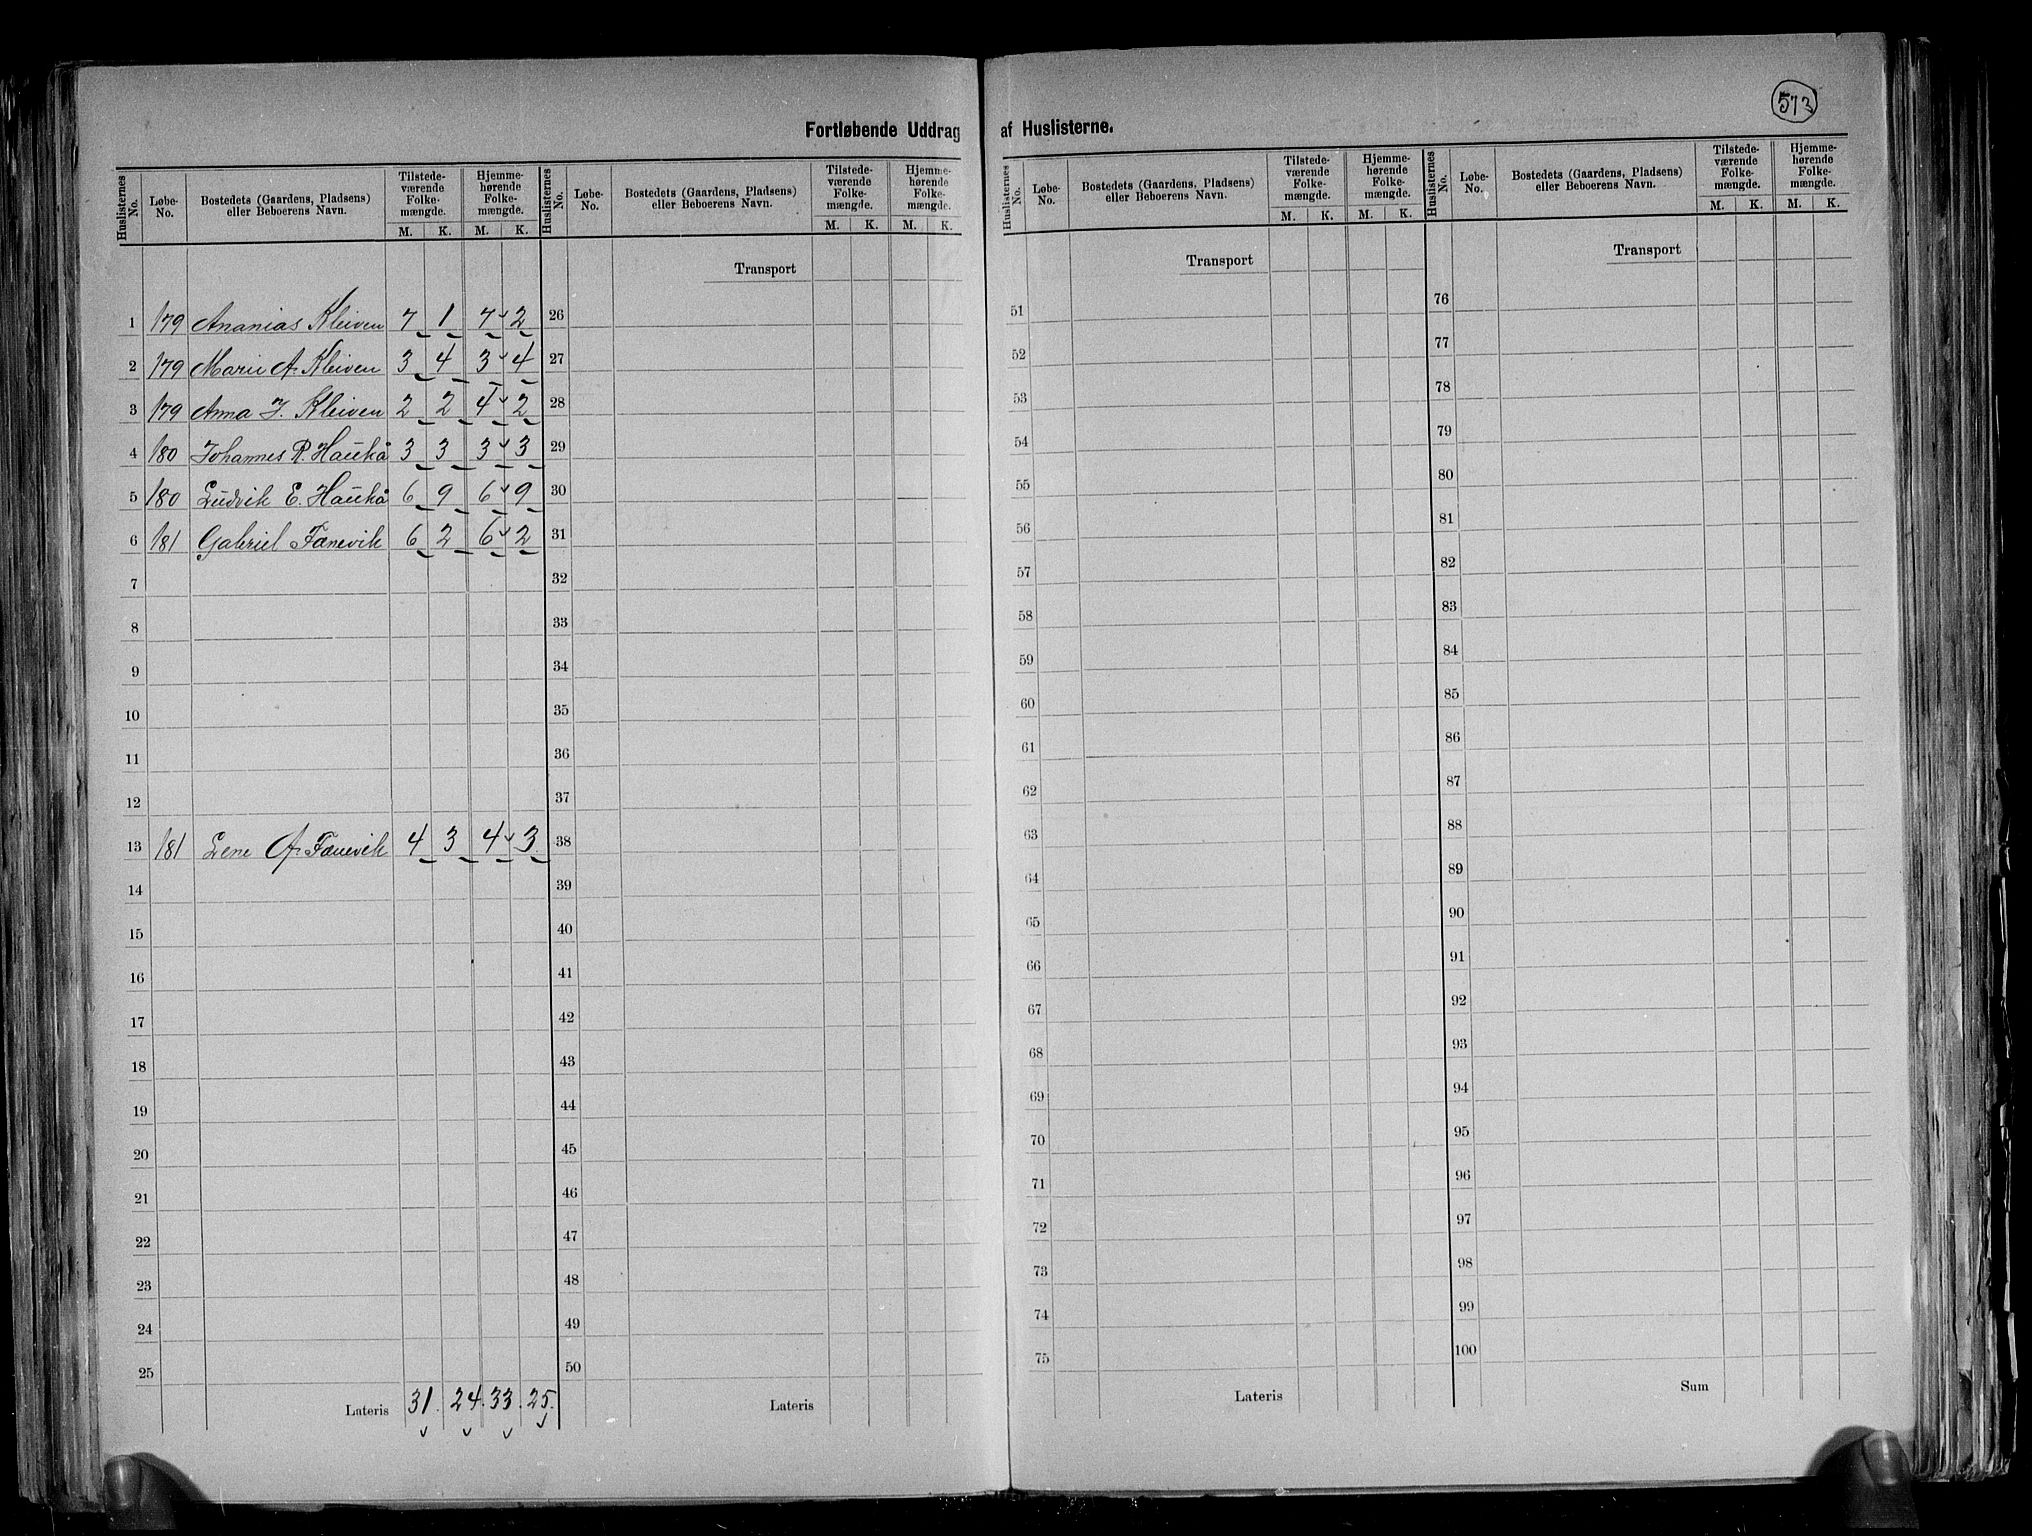 573
Fortløbende Uddrag af Huslisterne.
Huslisternes No. Løbe-No. Bostedets (Gaardens, Pladsens) eller Beboerens Navn. Tilstedeværende Folkemængde. M. K. Hjemmehørende Folkemængde. M. K.
1 179 Ananias Kleiven 7 1 7 2
2 179 Marie A. Kleiven 3 4 3 4
3 179 Anna J. Kleiven 2 2 4 2
4 180 Johannes R. Haukå 3 3 3 3
5 180 Ludvik E. Haukå 6 9 6 9
6 181 Gabriel Fænevik 6 2 6 2
7
8
9
10
11
12
13 181 Lene A. Fænevik 4 3 4 3
14
15
16
17
18
19
20
21
22
23
24
25
Lateris 31. 24. 33. 25.
Huslisternes No. Løbe-No. Bostedets (Gaardens, Pladsens) eller Beboerens Navn. Tilstedeværende Folkemængde. M. K. Hjemmehørende Folkemængde. M. K.
Transport
26
27
28
29
30
31
32
33
34
35
36
37
38
39
40
41
42
43
44
45
46
47
48
49
50
Lateris
Huslisternes No. Løbe-No. Bostedets (Gaardens, Pladsens) eller Beboerens Navn. Tilstedeværende Folkemængde. M. K. Hjemmehørende Folkemængde. M. K.
Transport
51
52
53
54
55
56
57
58
59
60
61
62
63
64
65
66
67
68
69
70
71
72
73
74
75
Lateris
Huslisternes No. Løbe-No. Bostedets (Gaardens, Pladsens) eller Beboerens Navn. Tilstedeværende Folkemængde. M. K. Hjemmehørende Folkemængde. M. K.
Transport
76
77
78
79
80
81
82
83
84
85
86
87
88
89
90
91
92
93
94
95
96
97
98
99
100
Sum